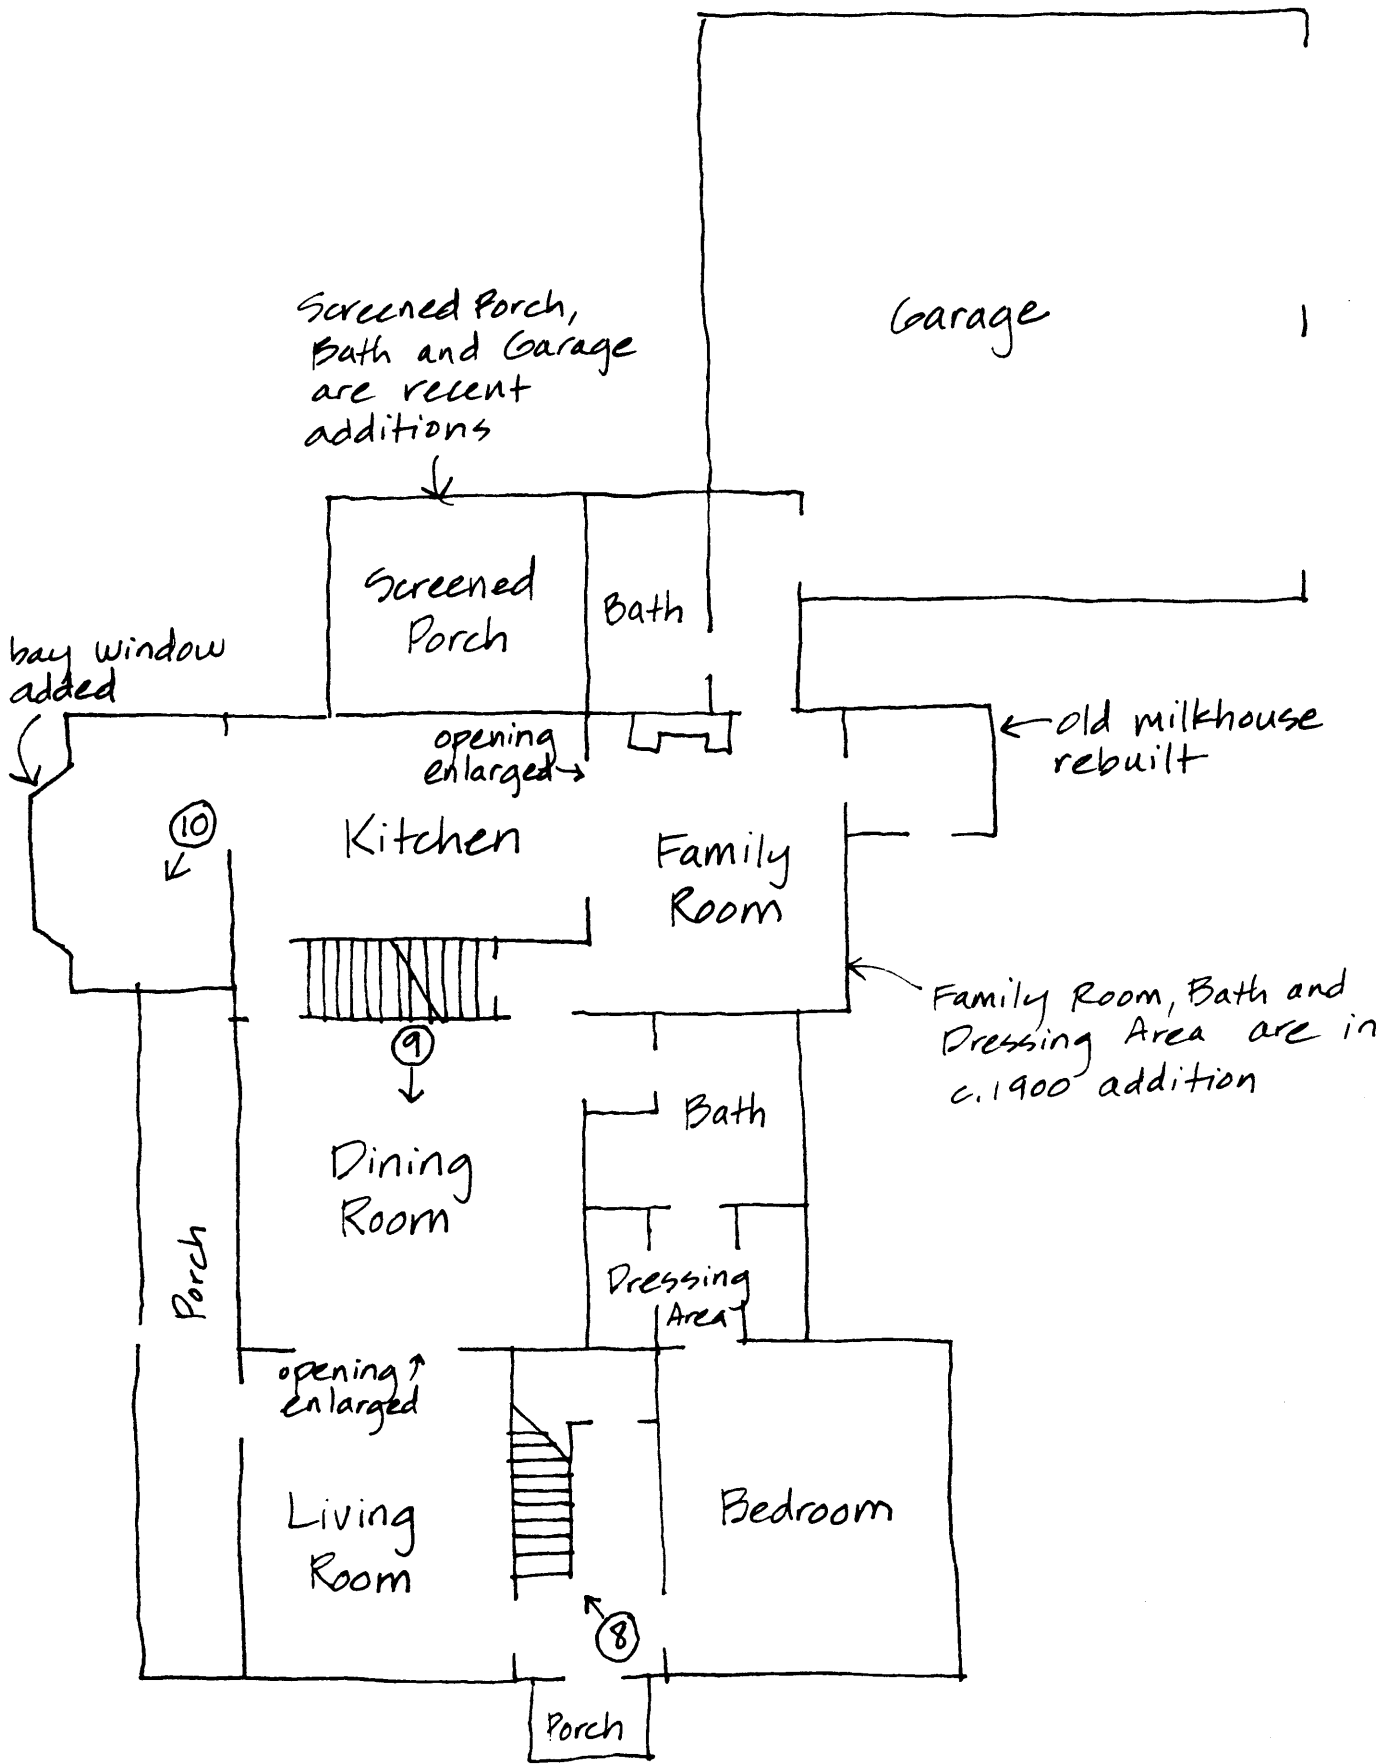 Garage
Screened Porch,
Bath and Garage
are recent
additions
Screened
Porch
Bath
bay window
added
opening
enlarged
old milkhouse
rebuilt
10
Kitchen
Family
Room
Family Room, Bath and
Dressing Area are in
c.1900 addition
9
Bath
Dining
Room
Porch
Dressing
Area
opening
enlarged
Living
Room
Bedroom
8
Porch